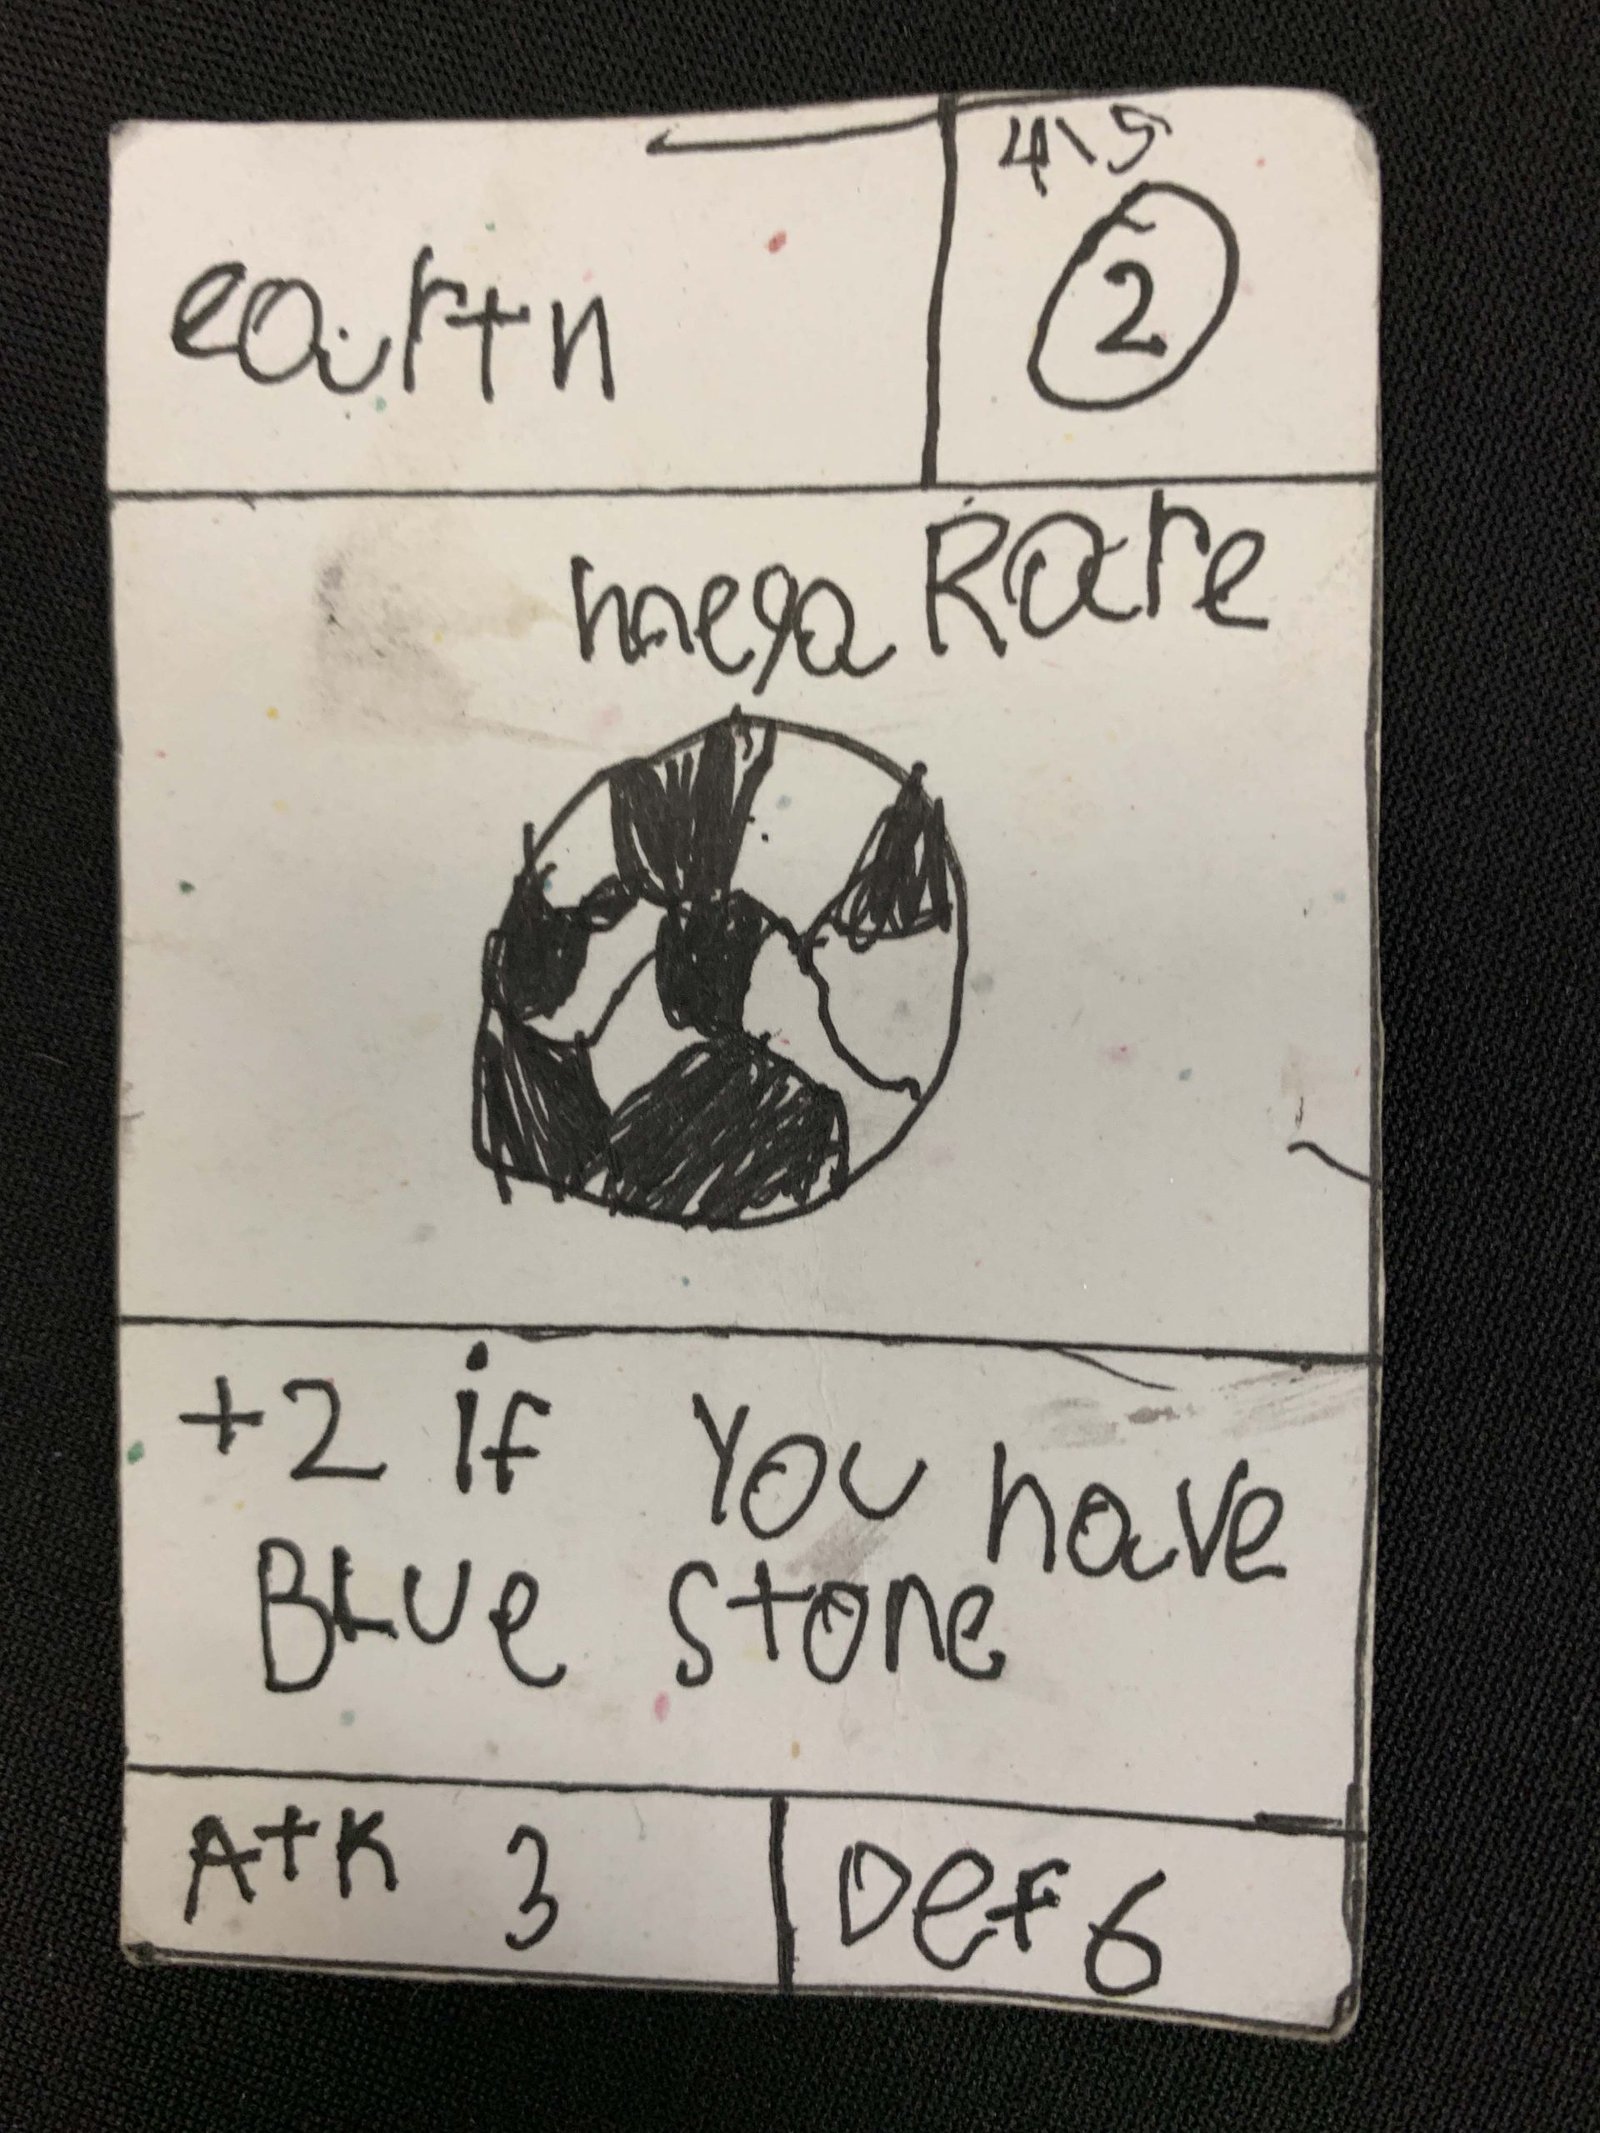 earth
4\5
2
mega Rare
+2 if You have
BLUe Stone
AtK 3
Def 6